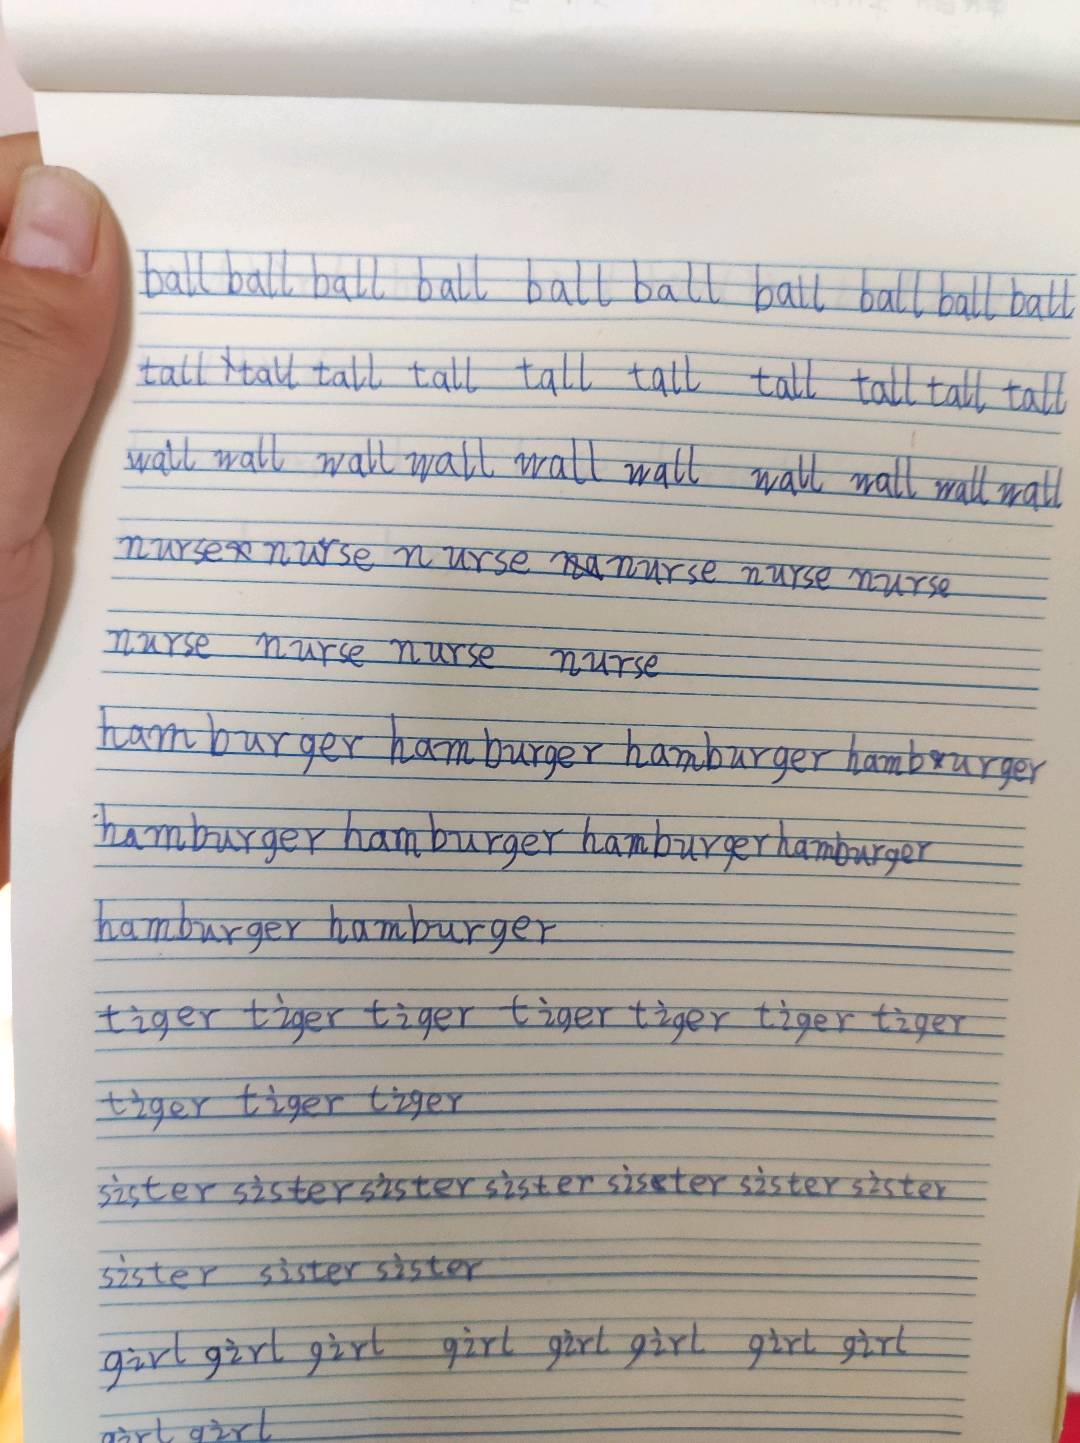 ball ball ball ball ball ball ball ball ball ball
tall tall tall tall tall tall tall tall tall tall
wall wall wall wall wall wall wall wall wall wall
nurse nurse nurse nurse nurse nurse
nurse nurse nurse nurse
hamburger hamburger hamburger hamburger
hamburger hamburger hamburger hamburger
hamburger hamburger
tiger tiger tiger tiger tiger tiger tiger
tiger tiger tiger
sister sister sister sister sister sister sister
sister sister sister
girl girl girl girl girl girl girl girl
girl girl